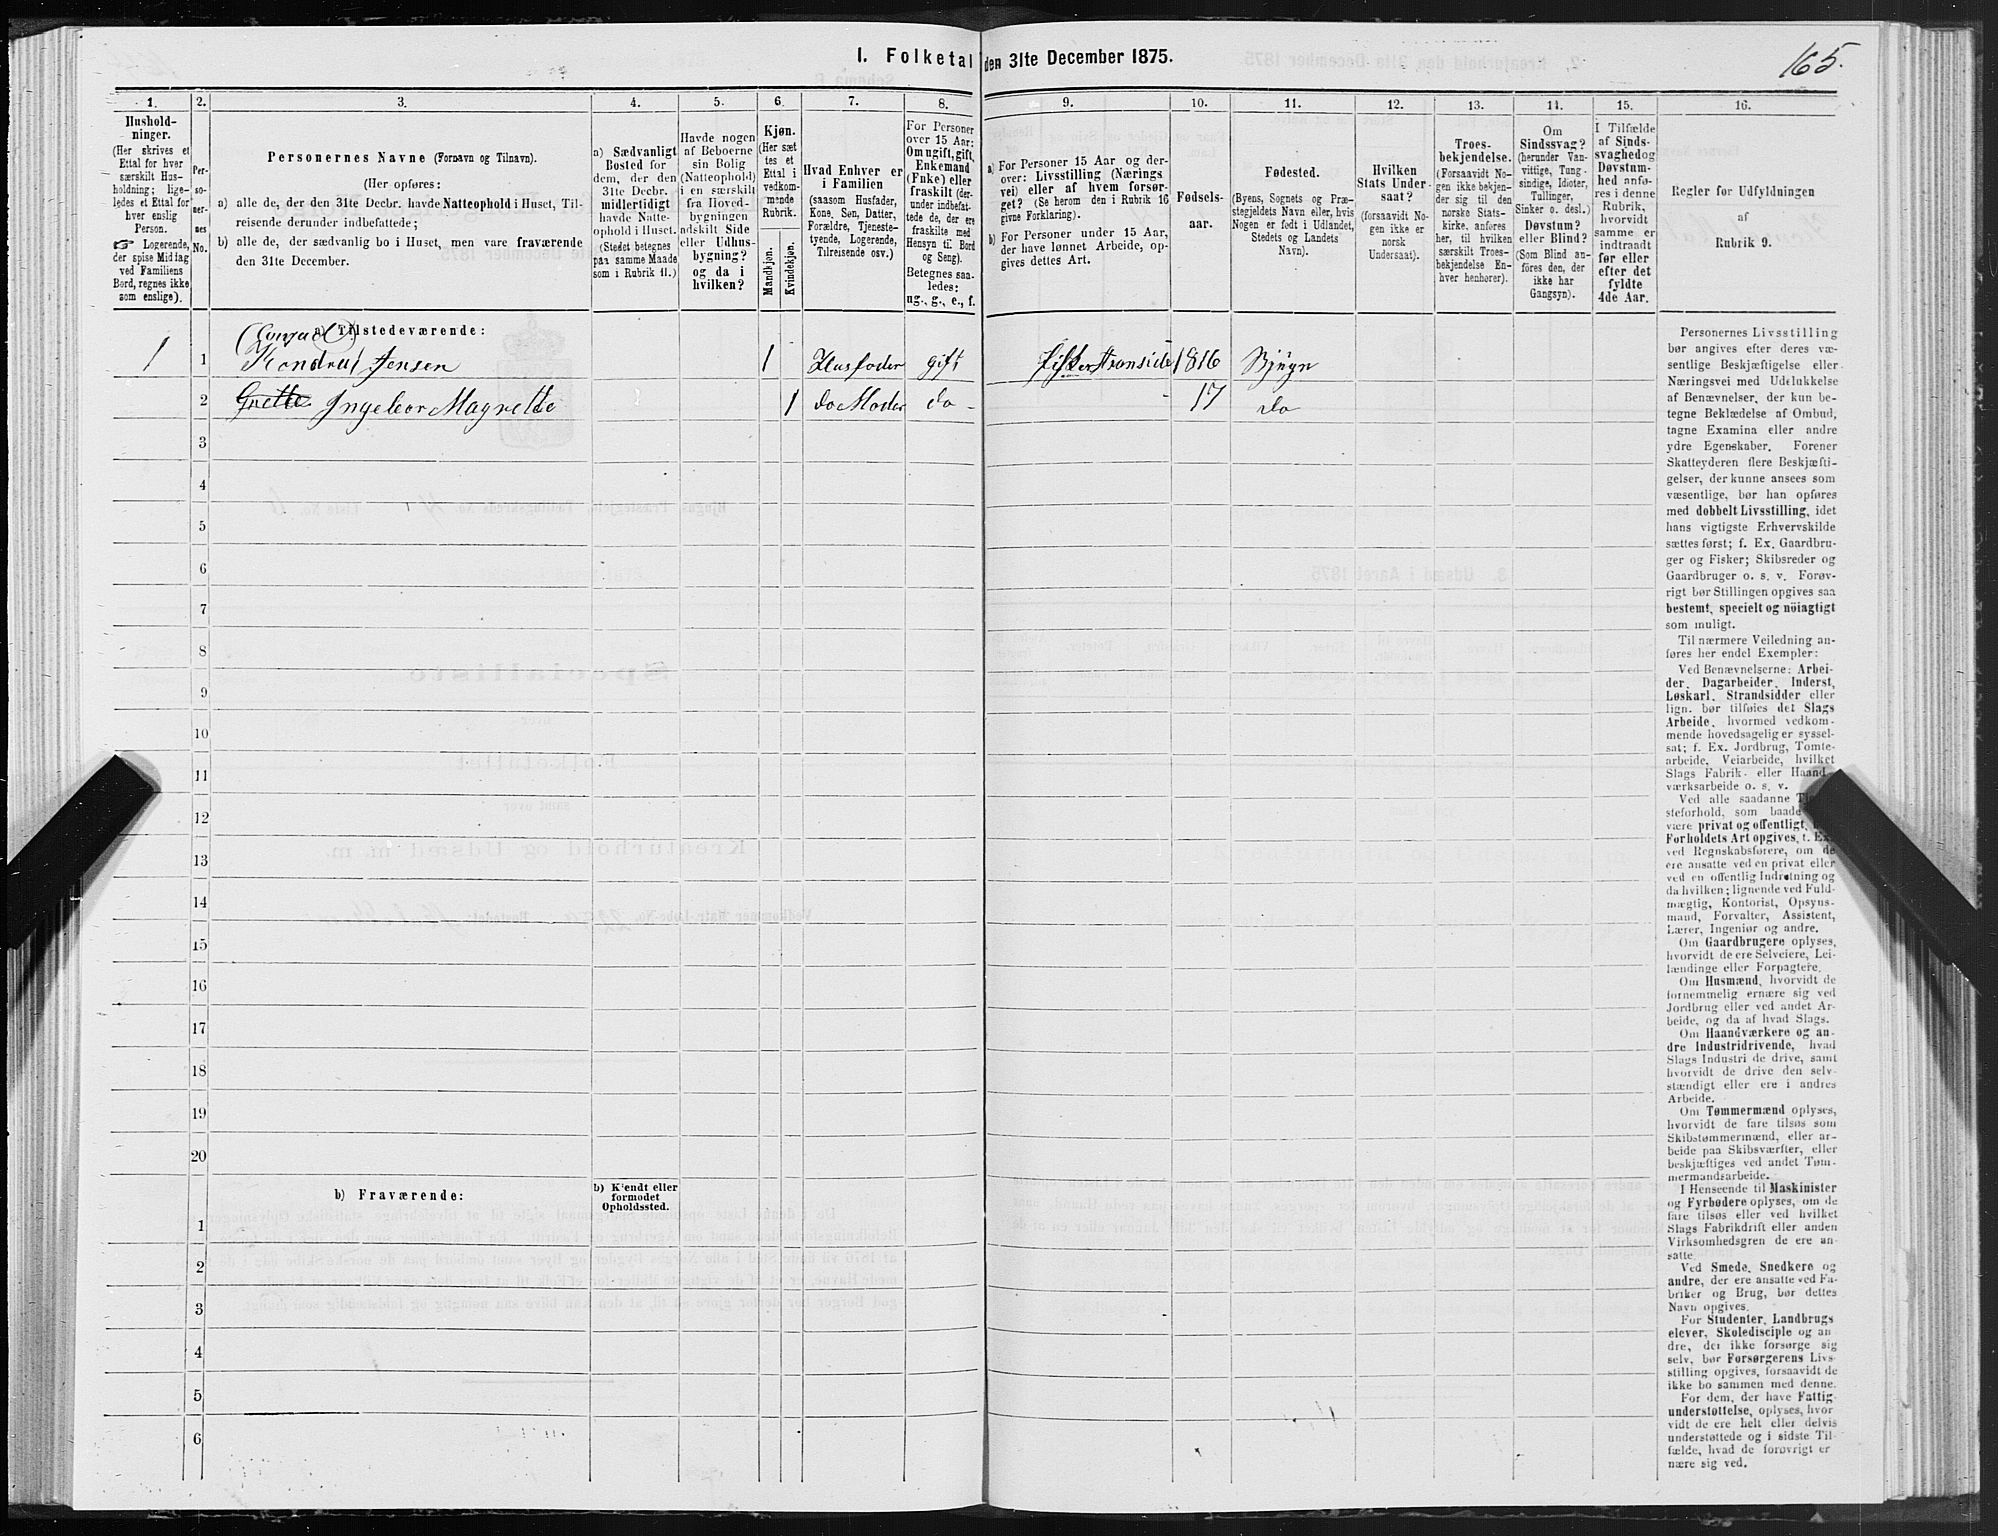 165.
I. Folketal den 31te December 1875.
1. 2. 3. 4. 5. 6. 7. 8. 9. 10. 11. 12. 13. 14. 15. 16.
Hushold-
ninger.
(Her skrives et
Ettal for hver
særskilt Hus-
holdning; lige-
ledes et Ettal for
hver enslig
Person.
☞ Logerende,
der spise Middag
ved Familiens
Bord, regnes ikke
som enslige).
Per-
so-
ner-
nes
No.
Personernes Navne (Fornavn og Tilnavn).
(Her opføres:
a) alle de, der den 31te Decbr. havde Natteophold i Huset, Til-
reisende derunder indbefattede;
b) alle de, der sædvanlig bo i Huset, men vare fraværende
den 31te December.
a) Sædvanligt
Bosted for
dem, der den
31te Decbr.
midlertidigt
havde Natte-
ophold i Huset.
(Stedet betegnes
paa samme Maade
som i Rubrik 11.)
Havde nogen
af Beboerne
sin Bolig
(Natteophold)
i en særskilt
fra Hoved-
bygningen
adskilt Side
eller Udhus-
bygning?
og da i
hvilken?
Kjøn.
(Her sæt
tes et
Ettal i
vedkom-
mende
Rubrik.
Mandkjøn.
Kvindekjøn.
Hvad Enhver er
i Familien
(saasom Husfader,
Kone, Søn, Datter,
Forældre, Tjeneste-
tyende, Logerende,
Tilreisende osv.)
For Personer
over 15 Aar:
Om ugift, gift,
Enkemand
(Enke) eller
fraskilt (der-
under indbefat-
tede de, der ere
fraskilte med
Hensyn til Bord
og Seng).
Betegnes saa-
ledes:
ug., g., e., f.
a) For Personer 15 Aar og der-
over: Livsstilling (Nærings
vei) eller af hvem forsør-
get? (Se herom den i Rubrik 16
givne Forklaring).
b) For Personer under 15 Aar,
der have lønnet Arbeide, op-
gives dettes Art.
Fødsels-
aar.
Fødested.
(Byens, Sognets og Præ-
stegjeldets Navn eller, hvis
Nogen er født i Udlandet,
Stedets og Landets
Navn).
Hvilken
Stats Under-
saat?
(forsaavidt No-
gen ikke er
norsk
Undersaat).
Troes-
bekjendelse.
(Forsaavidt No-
gen ikke bekjen-
der sig til den
norske Stats-
kirke, anføres
her, til hvilken
særskilt Troes-
bekjendelse En-
hver henhører).
Om
Sindssvag?
(herunder Van-
vittige, Tung-
sindige, Idioter,
Tullinger,
Sinker o. desl.)
Døvstum?
eller Blind?
(Som Blind an-
føres den, der
ikke har
Gangsyn).
I Tilfælde
af Sinds-
svaghed og
Døvstum-
hed anfø-
res i denne
Rubrik,
hvorvidt
samme er
indtraadt
før eller
efter det
fyldte
4de Aar.
Regler for Udfyldningen
af
Rubrik 9.
a) Tilstedeværende:
(Conrad)
1 1 Kondrad Jensen 1 Husfader gift Fisker Stranside 1816 Bjugn
2 Grette Ingebor Magrette 1 do Moder do - 17 do
3
4
5
6
7
8
9
10
11
12
13
14
15
16
17
18
19
20
b) Fraværende:
b) Kjendt eller
formodet
Opholdssted.
1
2
3
4
5
6
Personernes Livsstilling
bør angives efter deres væ-
sentlige Beskjæftigelse eller
Næringsvei med Udelukkelse
af Benævnelser, der kun be-
tegne Beklædelse af Ombud,
tagne Examina eller andre
ydre Egenskaber. Forener
Skatteyderen flere Beskjæfti-
gelser, der kunne ansees som
væsentlige, bør han opføres
med dobbelt Livsstilling, idet
hans vigtigste Erhvervskilde
sættes først; f. Ex. Gaardbru-
ger og Fisker; Skibsreder og
Gaardbruger o. s. v. Forøv-
rigt bør Stillingen opgives saa
bestemt, specielt og nöiagtigt
som muligt.
Til nærmere Veiledning an-
føres her endel Exempler:
Ved Benævnelserne: Arbei-
der, Dagarbeider, Inderst,
Løskarl, Strandsidder eller
lign. bør tilføies det Slags
Arbeide, hvormed vedkom-
mende hovedsagelig er syssel-
sat; f. Ex. Jordbrug, Tomte-
arbeide, Veiarbeide, hvilket
Slags Fabrik- eller Haand-
værksarbeide o. s. v.
Ved alle saadanne
steforhold, som baade
være privat og offentligt,
Forholdets Art opgives, t. Ex.
ved Regnskabsførere, om de
ere ansatte ved en privat eller
ved en offentlig Indretning og
da hvilken; lignende ved Fuld-
mægtig, Kontorist, Opsyns-
mand, Forvalter, Assistent,
Lærer, Ingeniør og andre.
Om Gaardbrugere oplyses,
hvorvidt de ere Selveiere, Lei-
lændinge eller Forpagtere.
Om Husmænd, hvorvidt de
fornemmelig ernære sig ved
Jordbrug eller ved andet Ar-
beide, og da af hvad Slags.
Om Haandværkere og an-
dre Industridrivende, hvad
Slags Industri de drive, samt
hvorvidt de drive den selv-
stændigt eller ere i andres
Arbeide.
Om Tømmermænd oplyses,
hvorvidt de fare tilsøs som
Skibstømmermænd, eller ar-
beide paa Skibsværfter, eller
beskjæftiges ved andet Tøm-
mermandsarbeide.
I Henseende til Maskinister
og Fyrbødere oplyses, om de
fare tilsøs eller ved hvilket
Slags Fabrikdrift eller anden
Virksomhedsgren de ere an-
satte.
Ved Smede, Snedkere og
andre, der ere ansatte ved Fa-
briker og Brug, bør dettes
Navn opgives.
For Studenter, Landbrugs
elever, Skoledisciple og an
dre, der ikke forsørge sig
selv, bør Forsørgerens Livs-
stilling opgives, forsaavidt de
ikke bo sammen med denne.
For dem, der have Fattig-
understøttelse, oplyses, hvor
vidt de ere helt eller delvis
understøttede og i sidste Til-
fælde, hvad de forøvrigt er
nære sig ved.